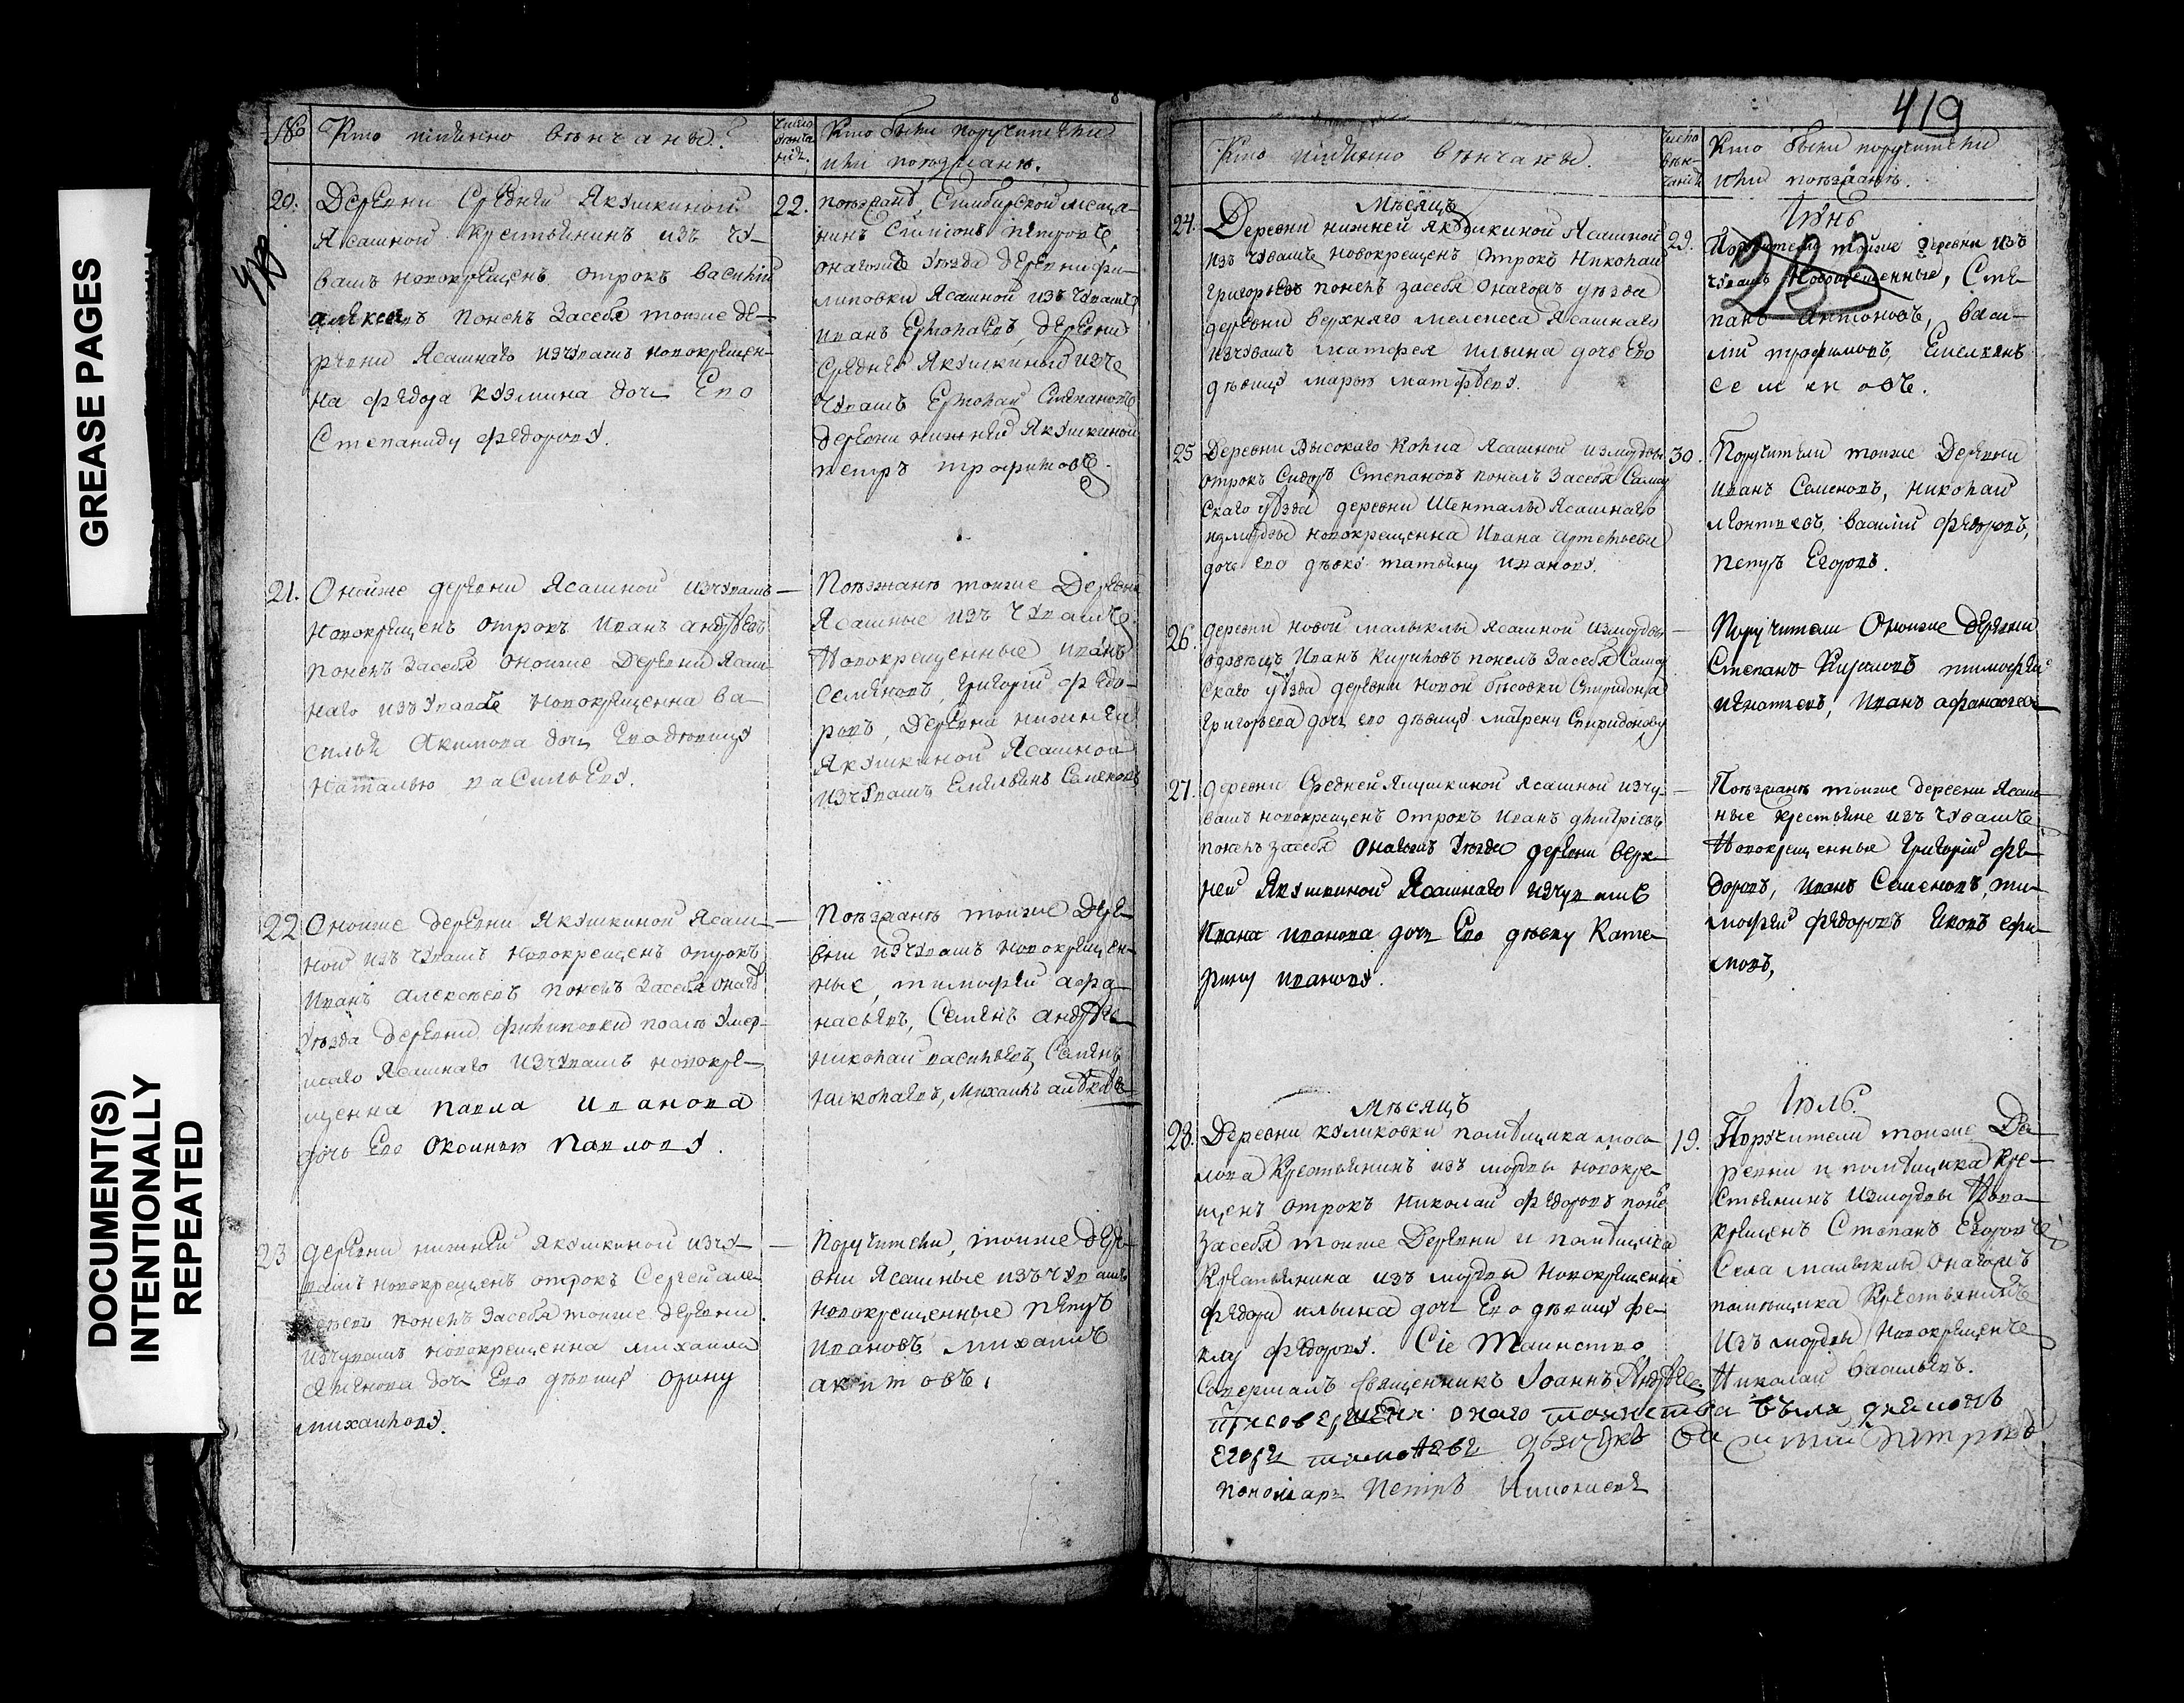 GREASE PAGES
DOCUMENT(S)
INTENTIONALLY
REPEATED
№
Кто имянно вѣнчаны?
число
вѣнча
нія.
Кто были поручители
или поѣзжанѣ.
20.
Деревни Средней Якушкиной
Ясашной крестьянинъ изъ чу-
вашъ новокрещенъ отрокъ Василій
Алексѣевъ понелъ засебя тоиже де-
ревни Ясашнаго изчувашъ новокрещен-
на Федора Кузмина дочь Ево
Степаниду Федорову.
22.
поѣзжанѣ, Симбирской меща-
нинъ Симіонъ Петровъ,
онагожъ уѣзда деревни Фи-
липовки Ясашной изъ чувашъ
Иванъ Ермолаевъ, деревни
Средней Якушкиной изъ
чувашъ Ермолай Степановъ
деревни нижней Якушкиной
петръ трофимовъ.
21.
Оноиже деревни Ясашной изчувашъ
новокрещенъ отрокъ Иванъ Андреевъ
понелъ засебя оноиже деревни Ясаш-
наго изчувашъ новокрещенна Ва-
силья Акимова дочь Ево дѣвицу
Наталью васильеву.
—
Поѣзжанѣ тоиже Деревни
Ясашные изъ чувашъ
Новокрещенные Иванъ
Семеновъ, Григорій Федо-
ровъ, Деревни нижней
Якушкиной Ясашной
изчувашъ Емельянъ Семеновъ
22
Оноиже деревни Якушкиной Ясаш-
ной изъ чувашъ новокрещенъ отрокъ
Иванъ алексеевъ понелъ засебя онагожъ
уѣзда деревни Филиповки послѣ умер-
шаго Ясашнаго изчувашъ новокре-
щенна павла Иванова
дочь Ево Оксинью Павлову.
—
Поѣзжанѣ тоиже Дере-
вни изчувашъ новокрещен-
ные, тимофей афа-
насьевъ, Семенъ андрее
николай васильевъ, Семенъ
николаевъ, Михаилъ
23
Деревни нижней Якушкиной изчу-
вашъ новокрещенъ отрокъ Сергей але
понелъ засебя тоиже деревни
изчувашъ новокрещенна михаила
Семенова дочь Ево дѣвицу Орину
михаилову.
—
Поручители, тоиже дере-
вни Ясашные изъ чувашъ
новокрещенные петръ
Ивановъ михаилъ
акимовъ.
419
Кто имянно вѣнчаны.
число
вѣн-
чанія
Кто были поручители
или поѣзжанѣ.
Мѣсяцъ
Іюнь
233
24.
Деревни нижней Якушкиной Ясашной
изъ чувашъ новокрещенъ отрокъ Николай
Григорьевъ понелъ засебя онагожъ уѣзда
деревни верхняго мелекеса Ясашнаго
изчувашъ матфея ильина дочь Ево
дѣвицу марью матфееву.
29.
Поручители тоиже деревни изъ
чувашъ Новокрещенные, Сте-
панъ Антоновъ, Васи-
лій трофимовъ, Емелянъ
семеновъ.
25
Деревни Высокаго Колка Ясашной измордвы
отрокъ Сидоръ Степановъ понелъ засебя Самар
скаго уѣзда деревни Шенталы Ясашнаго
измордвы новокрещенна Ивана артемьева
дочь ево дѣвку татьяну иванову.
30.
Поручители тоиже Деревни
Иванъ Семеновъ, николай
леонтиевъ, василій Федоровъ,
петръ Егоровъ.
26.
деревни новой малыклы ясашной измордвы
вдовецъ Иванъ Кириловъ понелъ засебя Самар
скаго уѣзда деревни новой бѣсовки Спиридона
Григорьева дочь ево дѣвицу матрену Спиридонову
—
Поручители Оноиже деревни
Степанъ Кириловъ тимофей
игнатьевъ, Иванъ афанасьев
27.
деревни Средней Якушкиной Ясашной изчу-
вашъ новокрещенъ отрокъ Иванъ дмитріевъ
понелъ засебя онагожъ уѣзда деревни верх-
ней Якушкиной Ясашнаго изчувашъ
Ивана иванова дочь Ево дѣвку Кате-
рину иванову.
—
Поѣзжанѣ тоиже деревни Ясаш-
ные крестьяне изъ чувашъ
Новокрещенные Григорій Фе-
доровъ, Иванъ Семеновъ, ти-
мофей Федоровъ Яковъ ефи-
мовъ,
Мѣсяцъ
Іюль.
28.
Деревни куликовки помѣщика
крестьянинъ изъ мордвы новокре-
щенъ отрокъ Николай Федоровъ поне
засебя тоиже Деревни и помѣщика
Крестьянина изъ мордвы Новокрещенна
Федора ильина дочь Ево дѣвицу Фе-
клу Федорову. Сіе Таинство
Совершалъ священникъ Іоаннъ Андрее.
19.
Поручители тоиже Де-
ревни и помѣщика Кре-
стьянинъ измордвы Ново-
крещенъ Степанъ Егоровъ
Села малыклы онагожъ
помѣщика Крестьянинъ
Изъ мордвы Новокрещенъ
Николай Васильевъ.
присовершеніи онаго таинства были
Егоръ
пономарь Петръ